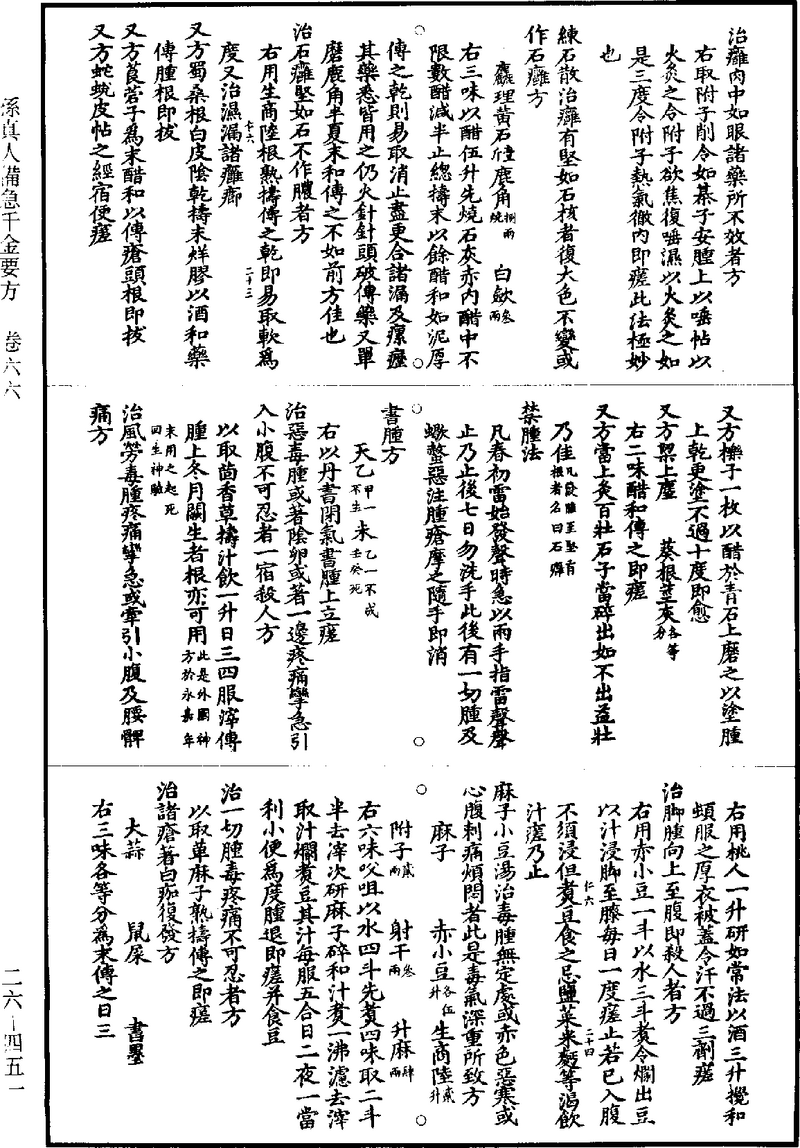 治癰肉中如眼諸藥所不效者方
右取附子削令如棊子安腫上以唾帖以
火灸之令附子欲焦復唾濕以火灸之如
是三度令附子熱氣徹內即瘥此法極妙
也
練石散治癰有堅如石核者復大色不變或
作石癰方
麤理黃石斤壹 鹿角捌兩燒 白蘞叁兩
右三味以醋伍升先燒石灰赤內醋中不
限數醋減半止總擣末以餘醋和如泥厚
傅之乾則易取消止盡更合諸漏及瘰癧
其藥悉皆用之仍火針針頭破傅藥又單
磨鹿角半夏末和傅之不如前方佳也
治石癰堅如石不作膿者方
右用生商陸根熟擣傅之乾即易取軟爲
度又治濕漏諸癰癤
又方蜀桑根白皮陰乾擣末烊膠以酒和藥
傅腫根即拔
又方莨菪子爲末醋和以傅瘡頭根即拔
又方蛇蛻皮帖之經宿便瘥
又方櫟子一枚以醋於青石上磨之以塗腫
上乾更塗不過十度即愈
又方梁上塵 葵根莖灰各等分
右二味醋和傅之即瘥
又方當上灸百壯石子當碎出如不出益壯
乃佳凡發腫至堅有根者名曰石癰
禁腫法
凡春初雷始發聲時急以兩手指雷聲聲
止乃止後七日勿洗手此後有一切腫及
蠍螫惡注腫瘡摩之隨手即消
書腫方
天乙甲一不生 未乙一不成壬癸死
右以丹書閉氣書腫上立瘥
治惡毒腫或著陰卵或著一邊疼痛攣急引
入小腹不可忍者一宿殺人方
以取茴香草擣汁飲一升日三四服滓傅
腫上冬月闕生者根亦可用此是外國神方於永嘉年
末用之起死回生神驗
治風勞毒腫疼痛攣急或牽引小腹及腰髀
痛方
右用桃人一升研如常法以酒三升攪和
頓服之厚衣被蓋令汗不過三劑瘥
治腳腫向上至腹即殺人者方
右用赤小豆一斗以水三斗煮令爛出豆
以汁浸腳至膝每日一度瘥止若已入腹
不須浸但煮豆食之忌鹽菜米麵等渴飲
汁瘥乃止
麻子小豆湯治毒腫無定處或赤色惡寒或
心腹刺痛煩悶者此是毒氣深重所致方
麻子 赤小豆各伍升 生商陸貳升
附子貳兩 射干叁兩 升麻肆兩
右六味㕮咀以水四斗先煮四味取二斗
半去滓次研麻子碎和汁煮一沸濾去滓
取汁爛煮豆其汁每服五合日二夜一當
利小便爲度腫退即瘥并食豆
治一切腫毒疼痛不可忍者方
以取萆麻子熟擣傅之即瘥
治諸瘡著白痂復發方
大蒜 鼠屎 書墨
右三味各等分爲末傅之日三
孫真人備急千金要方 卷六六
二六-四五一